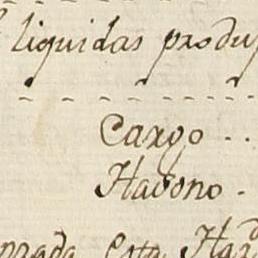 liquidas produ
Cargo . .
Havono .
Esta Ha